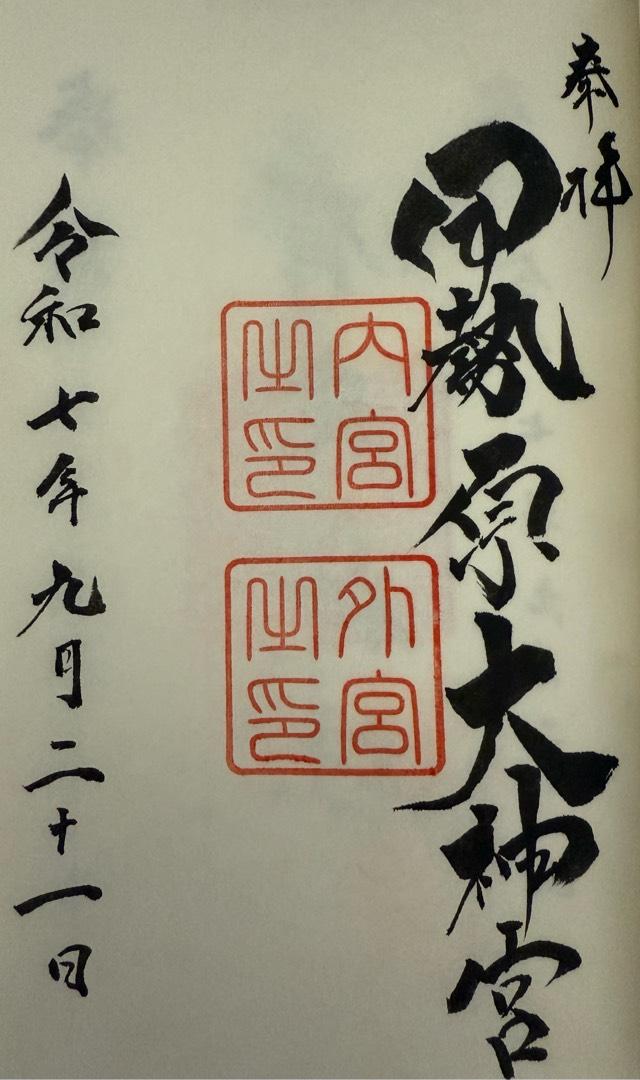 奉拝
伊勢原大神宮
内宮
之印
外宮
之印
令和七年九月二十一日